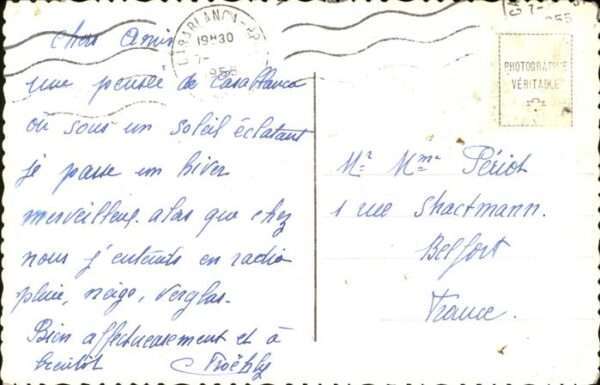 CASABLANCA-RP
19H30
7-
1955
7-
1955
PHOTOGRAPHIE
VÉRITABLE
Chers Amis
une pensée de Casablanca
où sous un soleil éclatant
je passe un hiver
merveilleux. alors que chez
nous j'entends en radio
pluie, neige, verglas.
Bien affectueusement et à
bientôt
Mr Mme Périot
1 rue Shactmann.
Belfort
France.